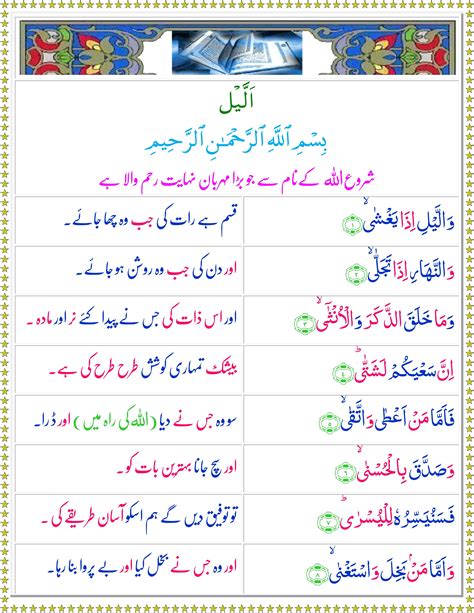 اَلَّيْل
بِسْمِ اللّٰهِ الرَّحْمٰنِ الرَّحِيْمِ
شروع اللہ کے نام سے جو بڑا مہربان نہایت رحم والا ہے
وَالَّيْلِ اِذَا يَغْشٰىۙ ۝۱ قسم ہے رات کی جب وہ چھا جائے۔
وَالنَّهَارِ اِذَا تَجَلّٰىۙ ۝۲ اور دن کی جب وہ روشن ہو جائے۔
وَمَا خَلَقَ الذَّكَرَ وَالْاُنْثٰٓىۙ ۝۳ اور اس ذات کی جس نے پیدا کئے نر اور مادہ۔
اِنَّ سَعْيَكُمْ لَشَتّٰىؕ ۝۴ بیشک تمہاری کوشش طرح طرح کی ہے۔
فَاَمَّا مَنْ اَعْطٰى وَاتَّقٰىۙ ۝۵ سو وہ جس نے دیا (اللہ کی راہ میں) اور ڈرا۔
وَصَدَّقَ بِالْحُسْنٰىۙ ۝۶ اور سچ جانا بہترین بات کو۔
فَسَنُيَسِّرُهٗ لِلْيُسْرٰىؕ ۝۷ تو توفیق دیں گے ہم اسکو آسان طریقے کی۔
وَاَمَّا مَنْۢ بَخِلَ وَاسْتَغْنٰىۙ ۝۸ اور وہ جس نے بخل کیا اور بے پروا بنا رہا۔